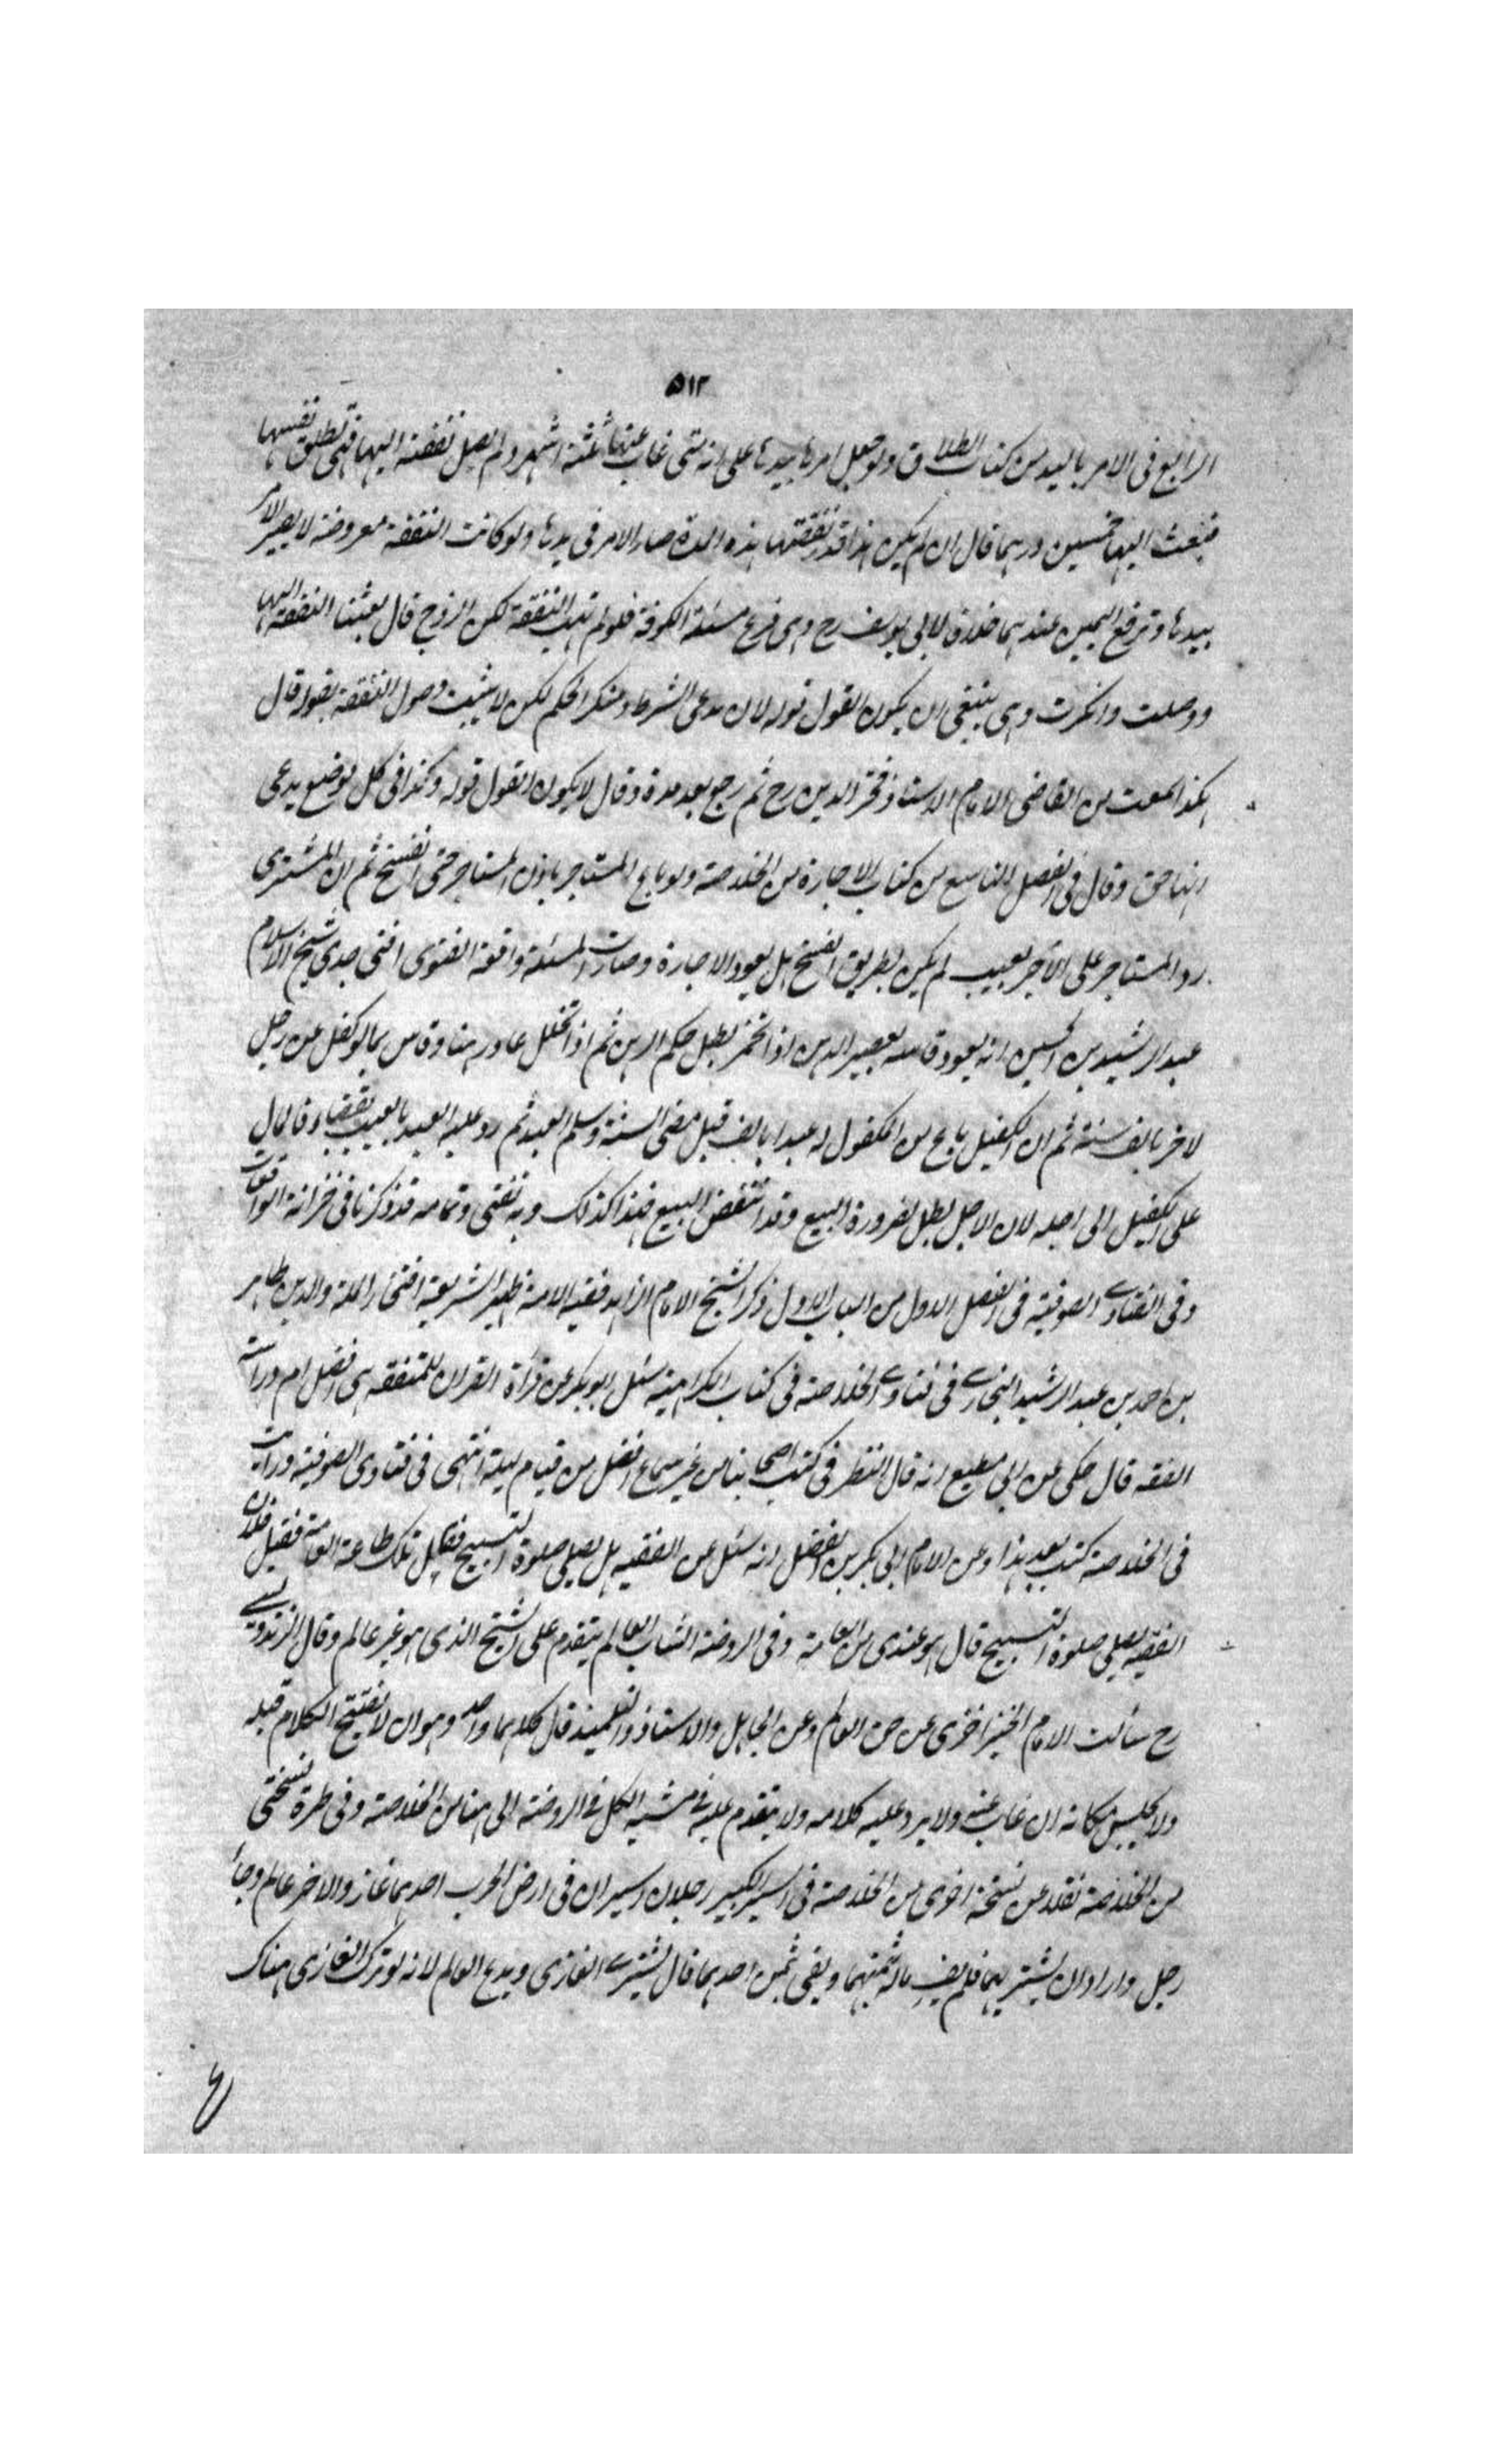 ٥١٢
الرابع فى الامر باليد من كتاب الطلاق ولو جعل امرها بيدها على انه متى غاب عنها ثلثة اشهر ولم يصل نفقته اليها فهى تطلق نفسها
فبعث اليها خمسين درهما قال ان لم يكن هذا قدر نفقتها هذه المدة صار الامر فى يدها ولو كانت النفقة مفروضة لا يصير الامر
بيدها وترفع اليمين عندهما خلافا لابى يوسف رح وهى فرع مسئلة الكوفة فلو لم تهب النفقة لكن الزوج قال بعثنا النفقة اليها
ووصلت وانكرت وهى ينبغى ان يكون القول قوله لان مدعى الشرط ومنكر الحكم لكن لا يثبت وصول النفقة بقوله قال
هكذا سمعت من القاضى الامام الاستاذ فخر الدين رح ثم رجع بعد مدة وقال لا يكون القول قوله وكذا فى كل موضع يدعى
ايفا حق وقال فى الفصل التاسع من كتاب الاجارة من الخلاصة ولو باع المستاجر باذن المستاجر حتى انفسخ ثم ان المشترى
رد المستاجر على الآجر بعيب لم يكن بطريق الفسخ هل يعود الاجارة وصارت المسئلة واقعة الفتوى افتى جدى شيخ الاسلام
عبد الرشيد بن الحسين انه يعود قاسه بعصير الرهن اذا تخمر بطل حكم الرهن ثم اذا تخلل عاد رهنا وقاس بما لو كفل عن رجل
لاخر بالف سنة ثم ان الكفيل باع من المكفول له عبدا بالف قبل مضى السنة وسلم العبد ثم رد عليه العبد بالعيب بقضاء فالمال
على الكفيل الى اجله لان الاجل بطل لضرورة البيع وقد انتقض البيع فهذا كذلك وبه نفتى وتمامه قد ذكرنا فى خزانة الواقعات
وفى الفتاوى الصوفية فى الفصل الاول من الباب الاول ذكر الشيخ الامام الزاهد فقيه الامة ظهير الشريعة افتخار الملة والدين طاهر
بن احمد بن عبد الرشيد البخارى فى فتاوى الخلاصة فى كتاب الكراهية سئل ابو بكر عن قرأة القران للمتفقه هى افضل ام دراسة
الفقه قال حكى عن ابى مطيع انه قال النظر فى كتب اصحابنا من غير سماع افضل من قيام ليلة انتهى فى فتاوى الصوفية ورأيت
فى الخلاصة كتب بعد هذا وعن الامام ابى بكر بن الفضل انه سئل عن الفقيه هل يصلى صلوة التسبيح فقال تلك طاعة العامة فقيل فلان
الفقيه يصلى صلوة التسبيح قال هو عندى من العامة وفى الروضة الشاب العالم يتقدم على الشيخ الذى هو غير عالم وقال الزندويستى
رح سألت الامام الخيزاخزى عن حق العالم وعن الجاهل والاستاذ والتلميذ قال كلاهما واحد وهو ان لا يفتتح الكلام قبله
ولا يجلس مكانه ان غاب عنه ولا يرد عليه كلامه ولا يتقدم عليه فى مشيه الكل فى الروضة الى هنا من الخلاصة وفى طرة نسختى
من الخلاصة نقلا عن نسخة اخرى من الخلاصة فى السير الكبير رجلان اسيران فى ارض الحرب احدهما غاز والاخر عالم وجاء
رجل واراد ان يشتريهما فلم يف ماله ثمنهما ويفى ثمن احدهما قال يشترى الغازى ويدع العالم لانه لو ترك الغازى هناك